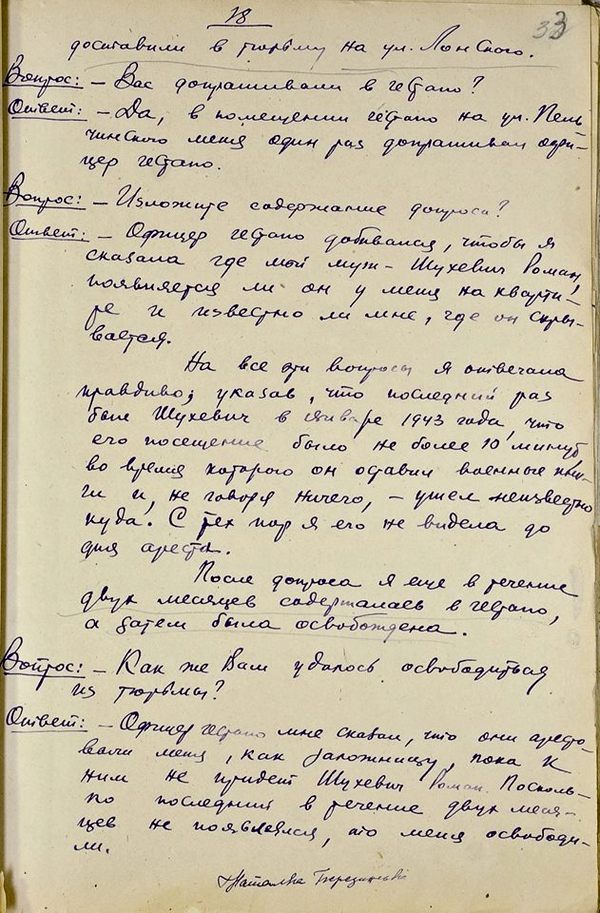 18
33
доставили в тюрьму на ул. Лонского.
Вопрос: – Вас допрашивали в гестапо?
Ответ: – Да, в помещении гестапо на ул. Пель-
чинского меня один раз допрашивал офи-
цер гестапо.
Вопрос: – Изложите содержание допроса?
Ответ: – Офицер гестапо добивался, чтобы я
сказала где мой муж – Шухевич Роман,
появляется ли он у меня на кварти-
ре и известно ли мне, где он скры-
вается.
На все эти вопросы я отвечала
правдиво, указав, что последний раз
был Шухевич в январе 1943 года, что
его посещение было не более 10 минут,
во время которого он оставил военные кни-
ги и, не говоря ничего, – ушел неизвестно
куда. С тех пор я его не видела до
дня ареста.
После допроса я еще в течение
двух месяцев содержалась в гестапо,
а затем была освобождена.
Вопрос: – Как же Вам удалось освободиться
из тюрьмы?
Ответ: – Офицер гестапо мне сказал, что они аресто-
вали меня, как заложницу, пока к
ним не придет Шухевич Роман. Посколь-
ко последний в течение двух меся-
цев не появлялся, то меня освободи-
ли.
Наталка Березинські